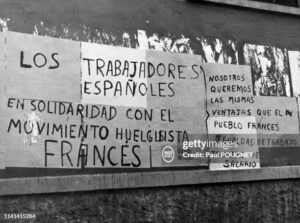 LOS TRABAJADORES
ESPAÑOLES
EN SOLIDARIDAD CON EL
MOVIMIENTO HUELGISISTA
FRANCES!
NOSOTROS
QUEREMOS
LAS MISMAS
VENTAJAS QUE EL
PUEBLO FRANCES
DE TRABAJO
SALARIO
gettyimages
Credit: Paul POUGNET
1143415284